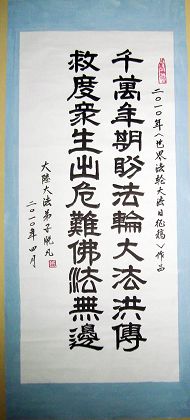 二〇一〇年《世界法輪大法日征稿》作品
千萬年期盼法輪大法洪傳
救度衆生出危難佛法無邊
大陸大法弟子脫凡
二〇一〇年四月